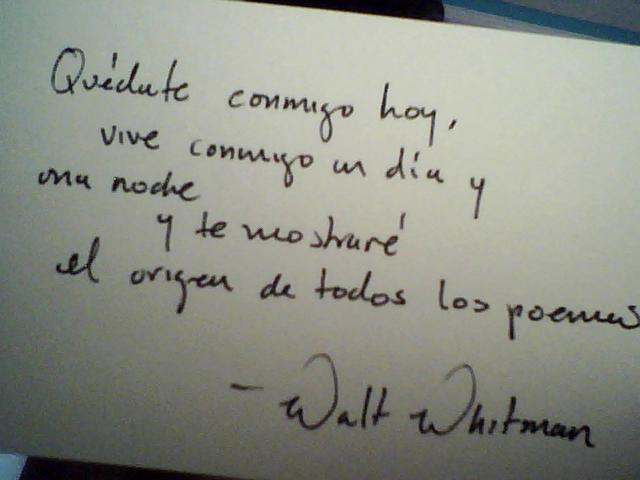 Quédate conmigo hoy,
vive conmigo un día y
una noche
y te mostraré
el origen de todos los poemas
- Walt Whitman